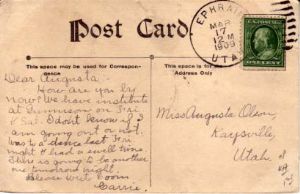 Post Card
EPHRAIM
MAR
17
12 M
1909
UTAH
This space may be used for Correspondence
This space is for
Address Only
Dear Augusta:-
How are you by
now? We have institute
at Gunnison on Fri
& Sat. I don't know if I
am going out or not.
Was to a dance last Fri
night & had a swell time.
There is going to be another
one tomorrow night.
Please write soon
Carrie.
Miss Augusta Olson,
Kaysville,
Utah.